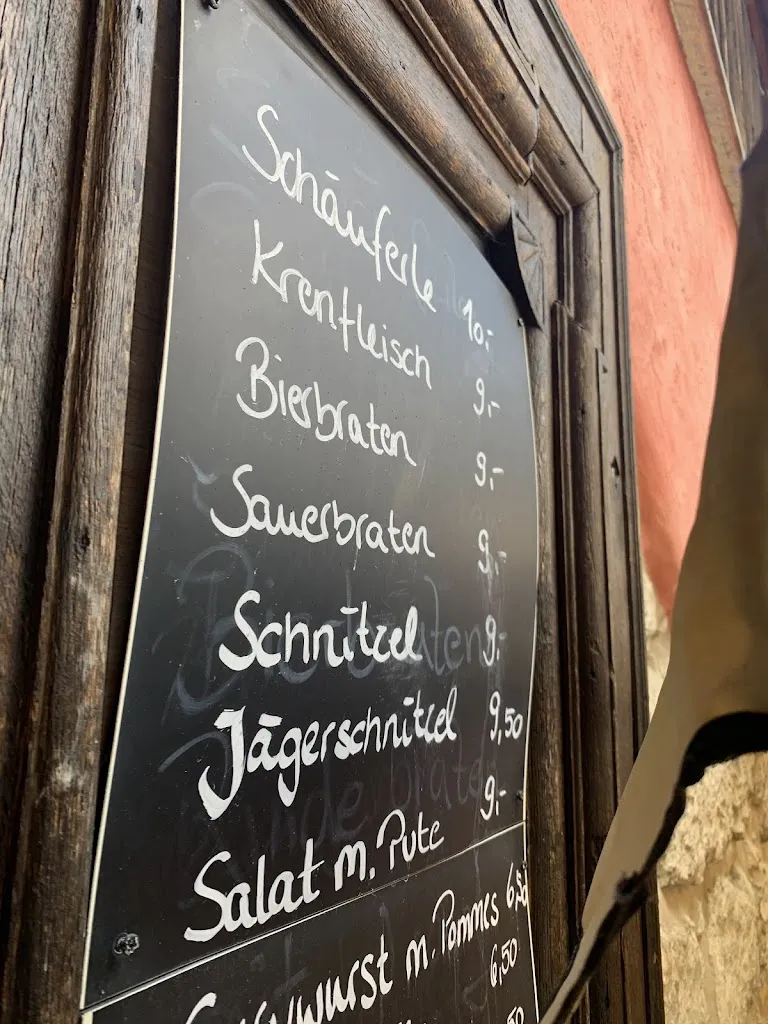 Schäuferle 10,-
Krenfleisch 9,-
Bierbraten 9,-
Sauerbraten 9,-
Schnitzel 9,-
Jägerschnitzel 9,50
Salat m. Pute 9,-
Currywurst m. Pommes
6,50